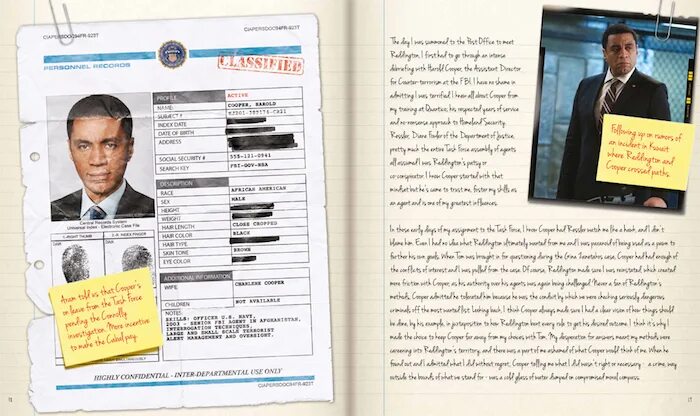 CIAPERSDOC94FR-923T
CIAPERSDOC94FR-923T
PERSONNEL RECORDS
CLASSIFIED
PROFILE ACTIVE
NAME: COOPER, HAROLD
SUBJECT #
INDEX DATE
DATE OF BIRTH
ADDRESS
SOCIAL SECURITY # 555-121-0941
SEARCH KEY FBI-GOV-NSA
Central Records System
Universal Index - Electronic Case File
1.-RIGHT THUMB
2.-R. INDEX FINGER
DESCRIPTION
RACE AFRICAN AMERICAN
SEX MALE
HEIGHT
WEIGHT
HAIR LENGTH CLOSE CROPPED
HAIR COLOR BLACK
HAIR TYPE
SKIN TONE BROWN
EYE COLOR
ADDITIONAL INFORMATION
WIFE CHARLENE COOPER
CHILDREN NOT AVAILABLE
NOTES
SKILLS: OFFICER U.S. NAVY,
2003 - SENIOR FBI AGENT IN AFGHANISTAN,
INTERROGATION TECHNIQUES,
LARGE AND SMALL SCALE TERRORIST
ALERT MANAGEMENT AND OVERSIGHT.
Aram told us that Cooper's
on leave from the Task Force
pending the Connolly
investigation. More incentive
to make the Cabal pay.
HIGHLY CONFIDENTIAL - INTER-DEPARTMENTAL USE ONLY
CIAPERSDOC94FR-923T
The day I was summoned to the Post Office to meet
Reddington, I first had to go through an intense
debriefing with Harold Cooper, the Assistant Director
for Counter-terrorism at the FBI. I have no shame in
admitting I was terrified. I knew all about Cooper from
my training at Quantico, his respected years of service
and no-nonsense approach to Homeland Security.
Ressler, Diane Fowler of the Department of Justice,
pretty much the entire Task Force assembly of agents
all assumed I was Reddington's patsy or
co-conspirator. I know Cooper started with that
mindset but he's come to trust me, foster my skills as
an agent and is one of my greatest influences.
Following up on rumors of
an incident in Kuwait
where Reddington and
Cooper crossed paths.
In those early days of my assignment to the Task Force, I know Cooper had Ressler watch me like a hawk, and I don't
blame him. Even I had no idea what Reddington ultimately wanted from me and I was paranoid of being used as a pawn to
further his own goals. When Tom was brought in for questioning during the Gina Zanetakos case, Cooper had had enough of
the conflicts of interest and I was pulled from the case. Of course, Reddington made sure I was reinstated, which created
more friction with Cooper, as his authority over his agents was again being challenged. Never a fan of Reddington's
methods, Cooper admitted he tolerated him because he was the conduit by which we were checking seriously dangerous
criminals off the most wanted list. Looking back, I think Cooper always made sure I had a clear view of how things should
be done, by his example, in juxtaposition to how Reddington bent every rule to get his desired outcome. I think it's why I
made the choice to keep Cooper far away from my choices with Tom. My desperation for answers meant my methods were
careening into Reddington's territory, and there was a part of me ashamed of what Cooper would think of me. When he
found out and I admitted what I did without regret, Cooper telling me what I did wasn't right or necessary - a crime, way
outside the bounds of what we stand for - was a cold glass of water dumped on compromised moral compass.